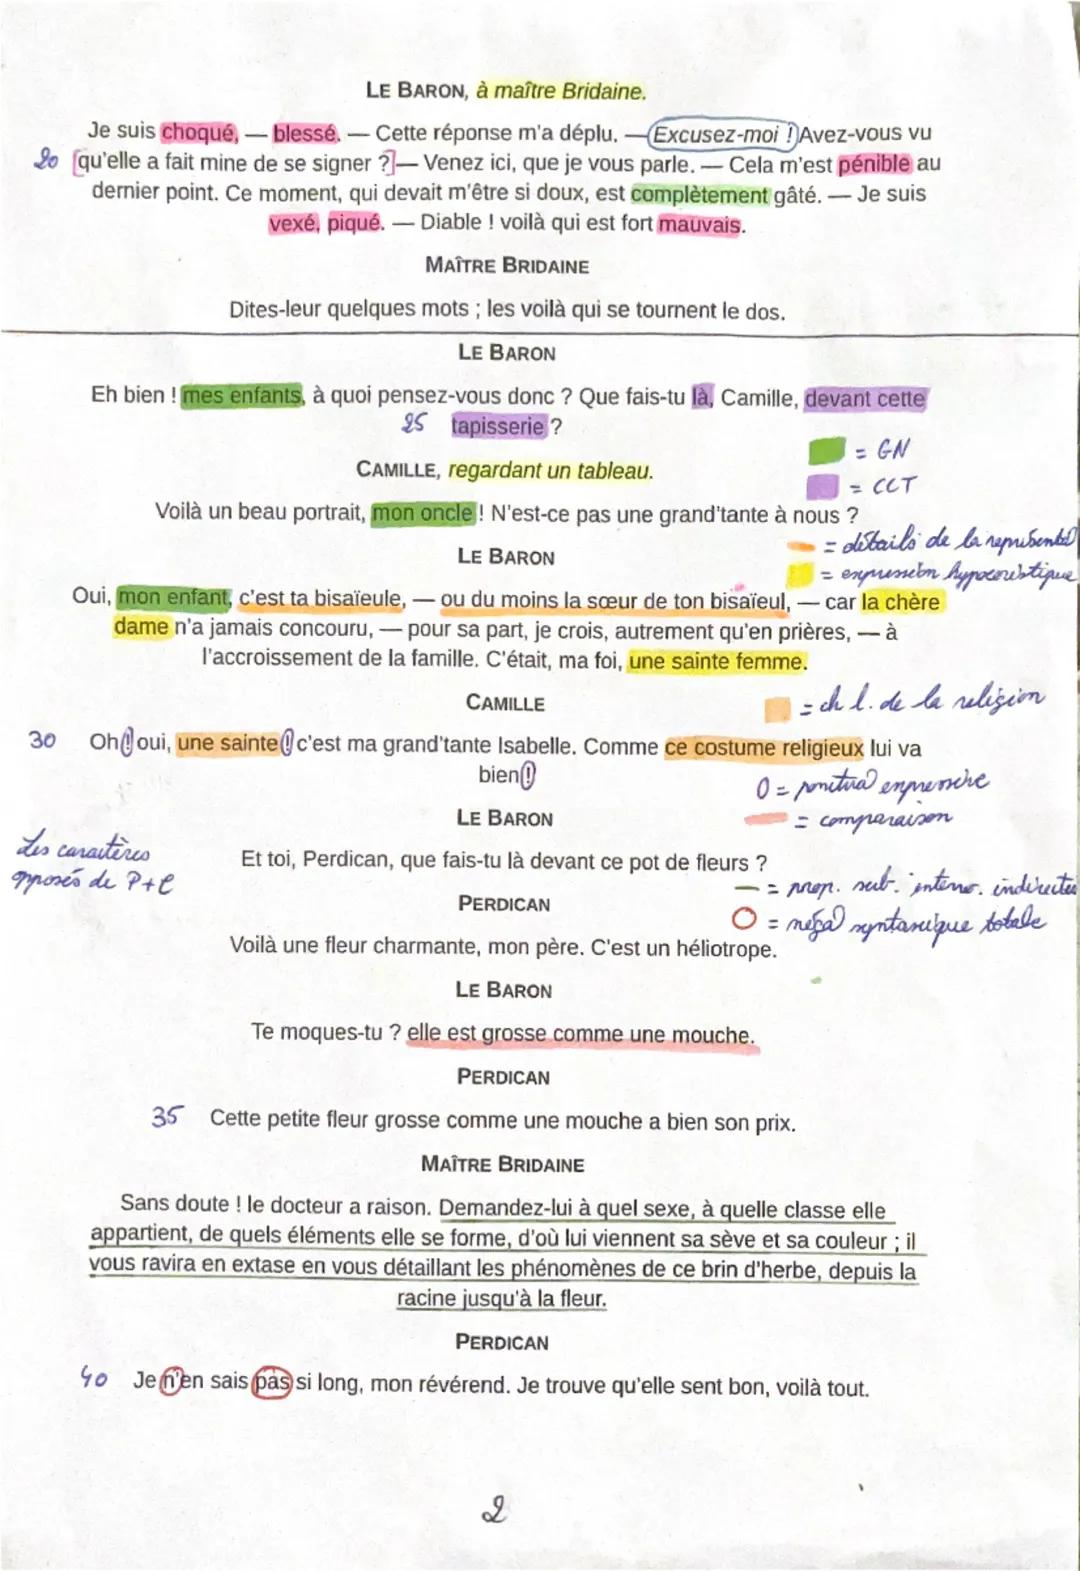 LE BARON, à maître Bridaine.
Je suis choqué, — blessé. — Cette réponse m'a déplu. — Excusez-moi ! Avez-vous vu
20 [qu'elle a fait mine de se signer ?] — Venez ici, que je vous parle. — Cela m'est pénible au
dernier point. Ce moment, qui devait m'être si doux, est complètement gâté. — Je suis
vexé, piqué. — Diable ! voilà qui est fort mauvais.
MAÎTRE BRIDAINE
Dites-leur quelques mots ; les voilà qui se tournent le dos.
LE BARON
Eh bien ! mes enfants, à quoi pensez-vous donc ? Que fais-tu là, Camille, devant cette
25 tapisserie ?
= GN
CAMILLE, regardant un tableau.
= CCT
Voilà un beau portrait, mon oncle ! N'est-ce pas une grand'tante à nous ?
= détails de la représentat
LE BARON
= expression hypocoristique
Oui, mon enfant, c'est ta bisaïeule, — ou du moins la sœur de ton bisaïeul, — car la chère
dame n'a jamais concouru, — pour sa part, je crois, autrement qu'en prières, — à
l'accroissement de la famille. C'était, ma foi, une sainte femme.
CAMILLE
= ch l. de la religion
30 Oh ! oui, une sainte ! c'est ma grand'tante Isabelle. Comme ce costume religieux lui va
bien !
0 = ponctua expressive
LE BARON
= comparaison
Les caractères
opposés de P+C
Et toi, Perdican, que fais-tu là devant ce pot de fleurs ?
= prop. sub. interro. indirectes
PERDICAN
O = néga syntaxique totale
Voilà une fleur charmante, mon père. C'est un héliotrope.
LE BARON
Te moques-tu ? elle est grosse comme une mouche.
PERDICAN
35 Cette petite fleur grosse comme une mouche a bien son prix.
MAÎTRE BRIDAINE
Sans doute ! le docteur a raison. Demandez-lui à quel sexe, à quelle classe elle
appartient, de quels éléments elle se forme, d'où lui viennent sa sève et sa couleur ; il
vous ravira en extase en vous détaillant les phénomènes de ce brin d'herbe, depuis la
racine jusqu'à la fleur.
PERDICAN
40 Je n'en sais pas si long, mon révérend. Je trouve qu'elle sent bon, voilà tout.
2